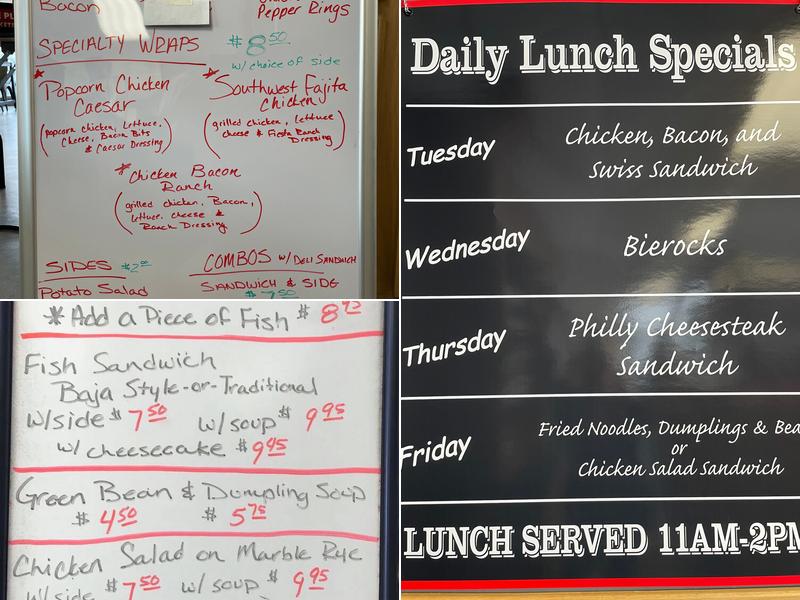 Bacon
Pepper Rings
SPECIALTY WRAPS $8.50
w/ choice of side
* Popcorn Chicken
Caesar
(popcorn chicken, Lettuce,
Cheese, Bacon Bits
& Caesar Dressing)
* Southwest Fajita
Chicken
(grilled chicken, Lettuce
cheese & Fiesta Ranch
Dressing)
* Chicken Bacon
Ranch
(grilled chicken, Bacon,
Lettuce, cheese &
Ranch Dressing)
SIDES $2.00
Potato Salad
COMBOS w/ DELI SANDWICH
SANDWICH & SIDE
$7.50
* Add a Piece of Fish $8.95
Fish Sandwich
Baja Style-or-Traditional
w/side $7.50 w/soup $9.95
w/ cheesecake $9.45
Green Bean & Dumpling Soup
$4.50 $5.75
Chicken Salad on Marble Rye
w/side $7.50 w/ soup $9.95
Daily Lunch Specials
Tuesday
Chicken, Bacon, and
Swiss Sandwich
Wednesday
Bierocks
Thursday
Philly Cheesesteak
Sandwich
Friday
Fried Noodles, Dumplings & Bea
or
Chicken Salad Sandwich
LUNCH SERVED 11AM-2PM